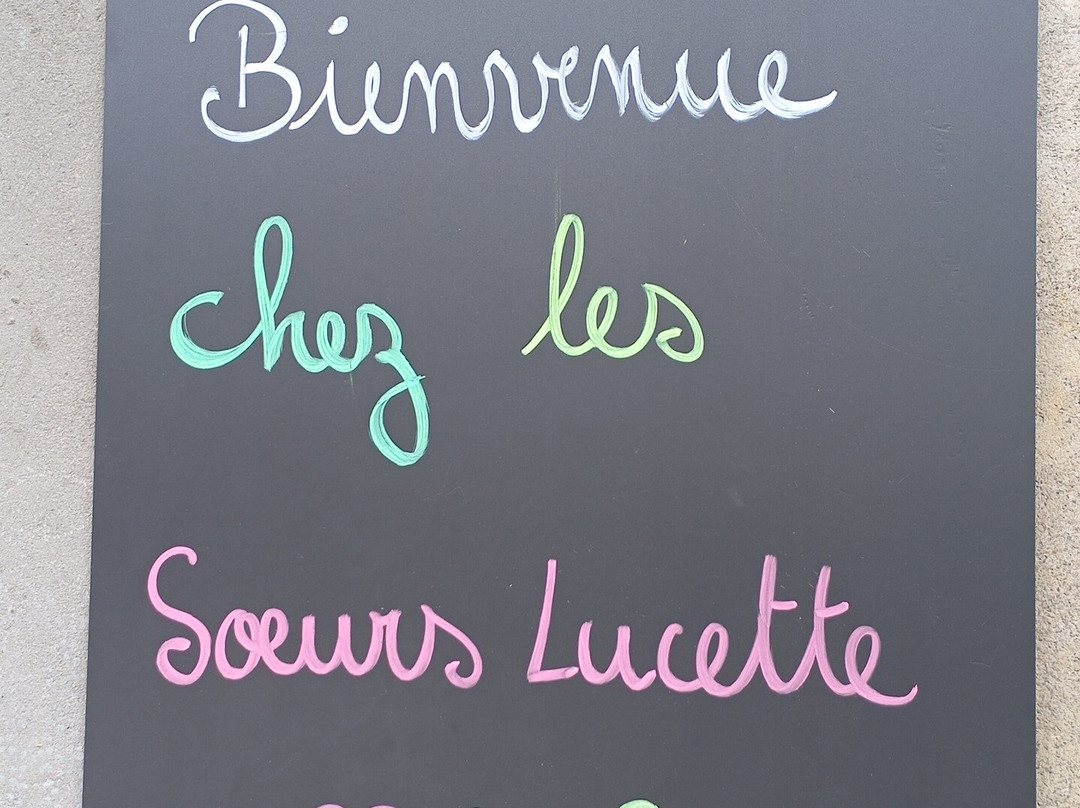 Bienvenue
chez les
Sœurs Lucette